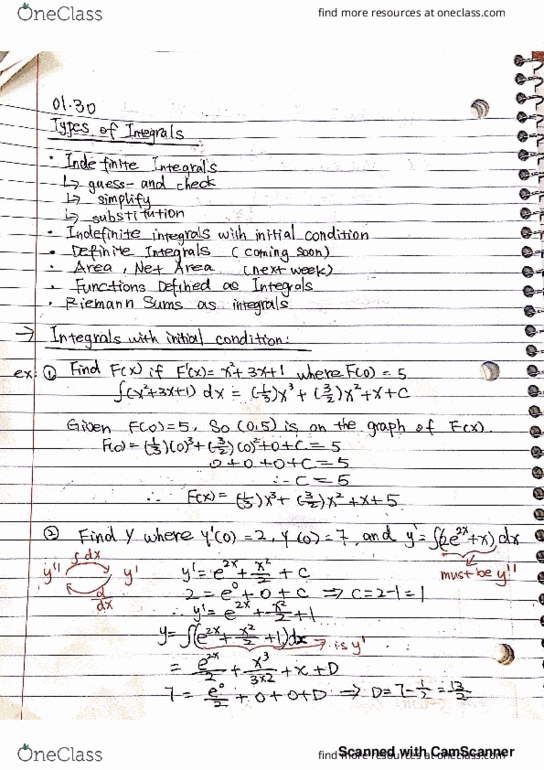 OneClass
find more resources at oneclass.com
01.30
Types of Integrals
· Indefinite Integrals
↳ guess-and check
↳ simplify
↳ substitution
· Indefinite integrals with initial condition
· Definite Integrals (coming soon)
· Area, Net Area (next week)
· Functions Defined as Integrals
· Riemann Sums as integrals
→ Integrals with initial condition:
ex: ① Find F(x) if F'(x)= x²+3x+1 where F(0) = 5
∫(x²+3x+1) dx = (1/3)x³ + (3/2)x² + x + C
Given F(0)=5, So (0,5) is on the graph of F(x).
F(0) = (1/3)(0)³ + (3/2)(0)² + 0 + C = 5
0 + 0 + 0 + C = 5
∴ C = 5
∴ F(x) = (1/3)x³ + (3/2)x² + x + 5
② Find Y where y'(0) = 2, y(0) = 7, and y' = ∫(2e^2x + x) dx
must be y''
∫dx
y'' y'
d/dx
y' = e^2x + x²/2 + C
2 = e^0 + 0 + C ⇒ C = 2-1 = 1
∴ y' = e^2x + x²/2 + 1
y = ∫(e^2x + x²/2 + 1) dx → is y'
= e^2x/2 + x³/3×2 + x + D
7 = e^0/2 + 0 + 0 + D ⇒ D = 7 - 1/2 = 13/2
OneClass
find more resources at oneclass.com
Scanned with CamScanner